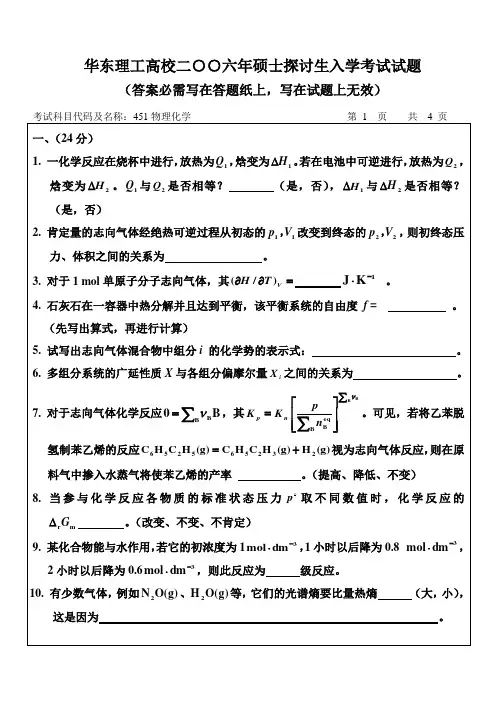 华东理工高校二○○六年硕士探讨生入学考试试题
（答案必需写在答题纸上，写在试题上无效）
考试科目代码及名称：451物理化学 第 1 页 共 4 页
一、（24分）
1. 一化学反应在烧杯中进行，放热为Q₁，焓变为ΔH₁。若在电池中可逆进行，放热为Q₂，
焓变为ΔH₂。Q₁与Q₂是否相等？______（是，否），ΔH₁与ΔH₂是否相等？
（是，否）
2. 肯定量的志向气体经绝热可逆过程从初态的p₁，V₁改变到终态的p₂，V₂，则初终态压
力、体积之间的关系为______。
3. 对于1 mol单原子分子志向气体，其(∂H/∂T)_V = ______ J·K⁻¹ 。
4. 石灰石在一容器中热分解并且达到平衡，该平衡系统的自由度 f = ______ 。
（先写出算式，再进行计算）
5. 试写出志向气体混合物中组分 i 的化学势的表示式：______。
6. 多组分系统的广延性质X与各组分偏摩尔量Xᵢ之间的关系为______。
7. 对于志向气体化学反应0=∑_B ν_B B，其K_p = K_n [p / ∑_B n_B^eq]^(∑_B ν_B)。可见，若将乙苯脱
氢制苯乙烯的反应C₆H₅C₂H₅(g)=C₆H₅C₂H₃(g)+H₂(g)视为志向气体反应，则在原
料气中掺入水蒸气将使苯乙烯的产率______。（提高、降低、不变）
8. 当参与化学反应各物质的标准状态压力p°取不同数值时，化学反应的
Δ_rG_m ______。（改变、不变、不肯定）
9. 某化合物能与水作用，若它的初浓度为1mol·dm⁻³，1小时以后降为0.8 mol·dm⁻³，
2小时以后降为0.6mol·dm⁻³，则此反应为______级反应。
10. 有少数气体，例如N₂O(g)、H₂O(g)等，它们的光谱熵要比量热熵______（大，小），
这是因为______。